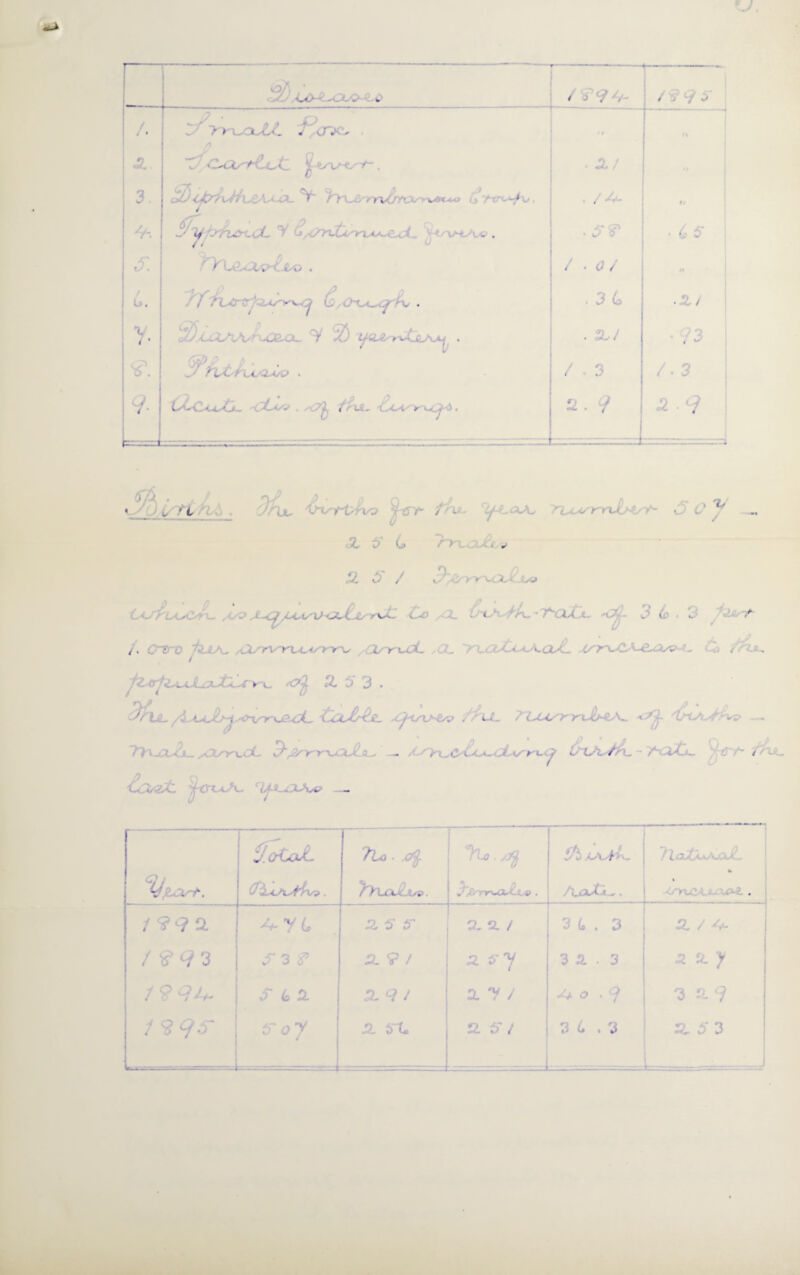 Diseases 1894 1895
1. Small Pox . " "
2. Scarlet fever . . 21 "
3. Diphtheria & Membranous Croup . . 14 "
4. Typhoid & Continued fevers . . 58 . 65
5. Measles . 1 . 01 "
6. Whooping Cough . . 36 . 21
7. Diarrhœa & Dysentery . . 21 . 93
8. Phthisis . 1 . 3 1 . 3
9. Acute dis . of the Lungs . 2 . 9 2 . 9
Births . The births for the year number 507 —
256 Males
251 Females
which is equivalent to a birth-rate of 36 . 3 per
1. 000 per annum and a natural increase to the
population of 253 .
The subjoined table gives the number of births —
Male and Female — including birth-rate for the
last four years —
Year. Total Births . No . of Males . No . of Females . Birth Rate . Natural increase .
1892 476 255 221 36 . 3 214
1893 538 281 257 32 . 3 227
1894 562 291 271 40 . 9 329
1895 507 256 251 36 . 3 253